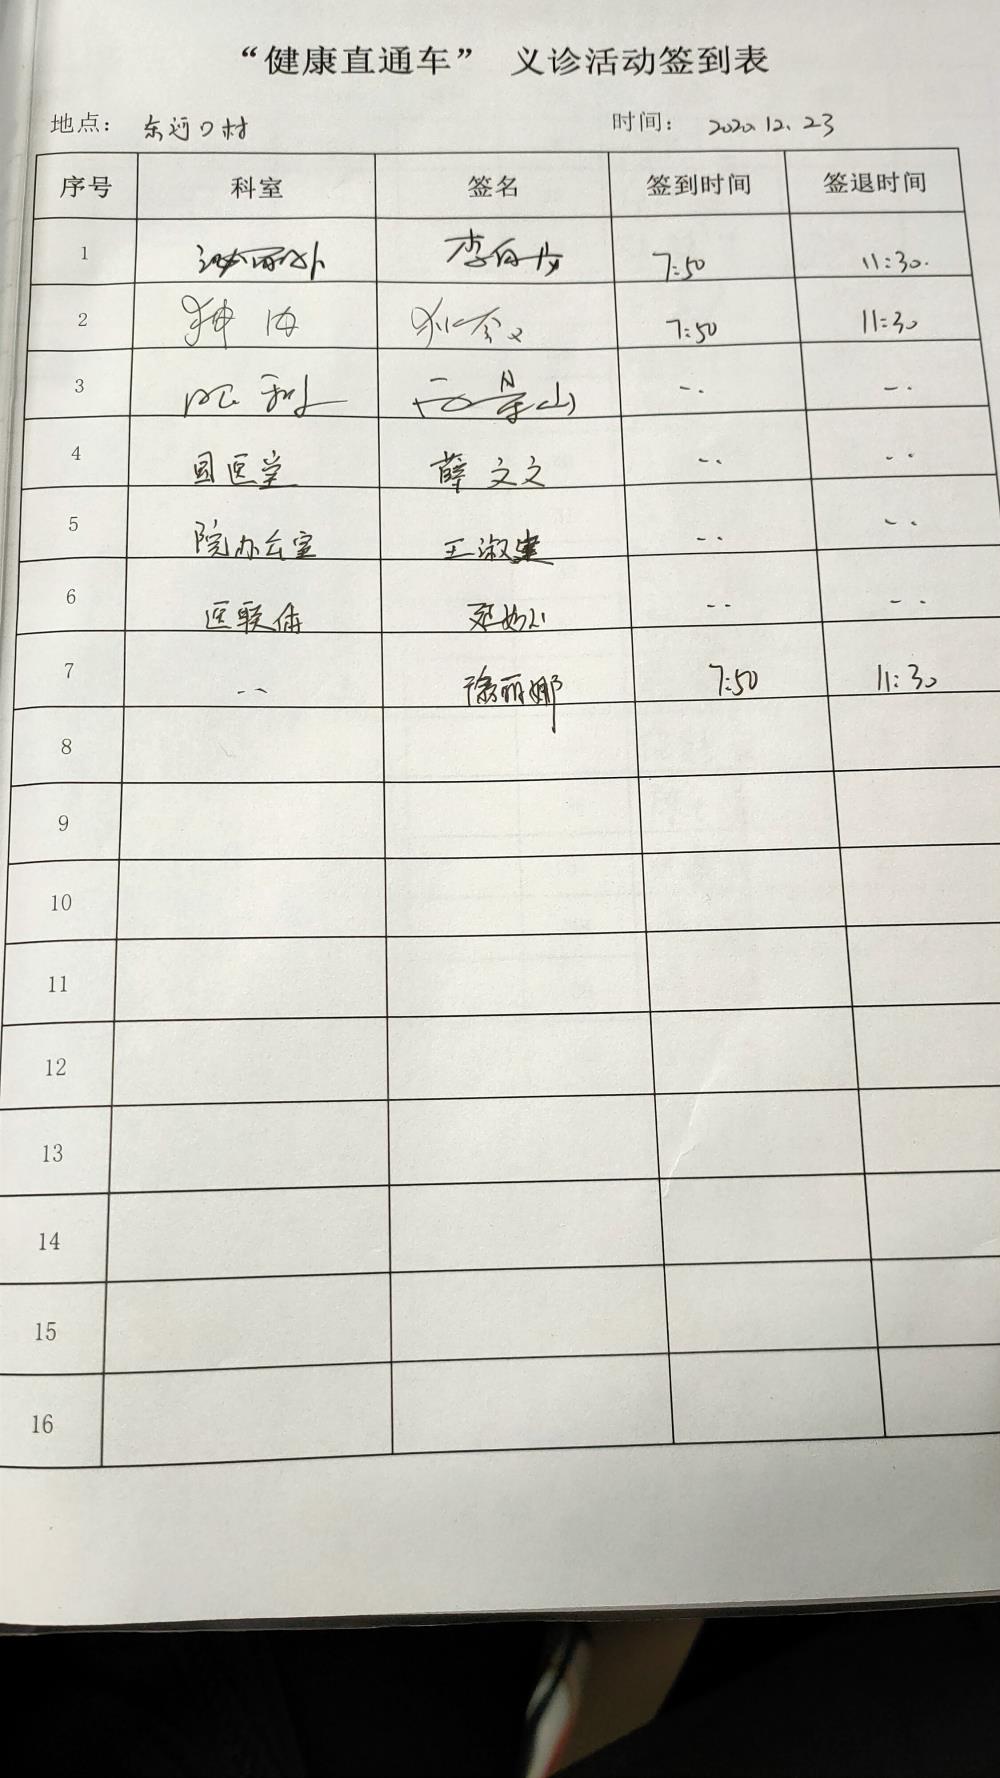 “健康直通车” 义诊活动签到表
地点： 东河口村 时间： 2020.12.23
序号 科室 签名 签到时间 签退时间
1 泌尿外 7:50 11:30.
2 神内 7:50 11:30
3 -. -.
4 国医堂 薛文文 -.. -.
5 院办公室 王淑建 -.. -..
6 医联体 -- -.
7 -- 徐丽娜 7:50 11:30
8
9
10
11
12
13
14
15
16